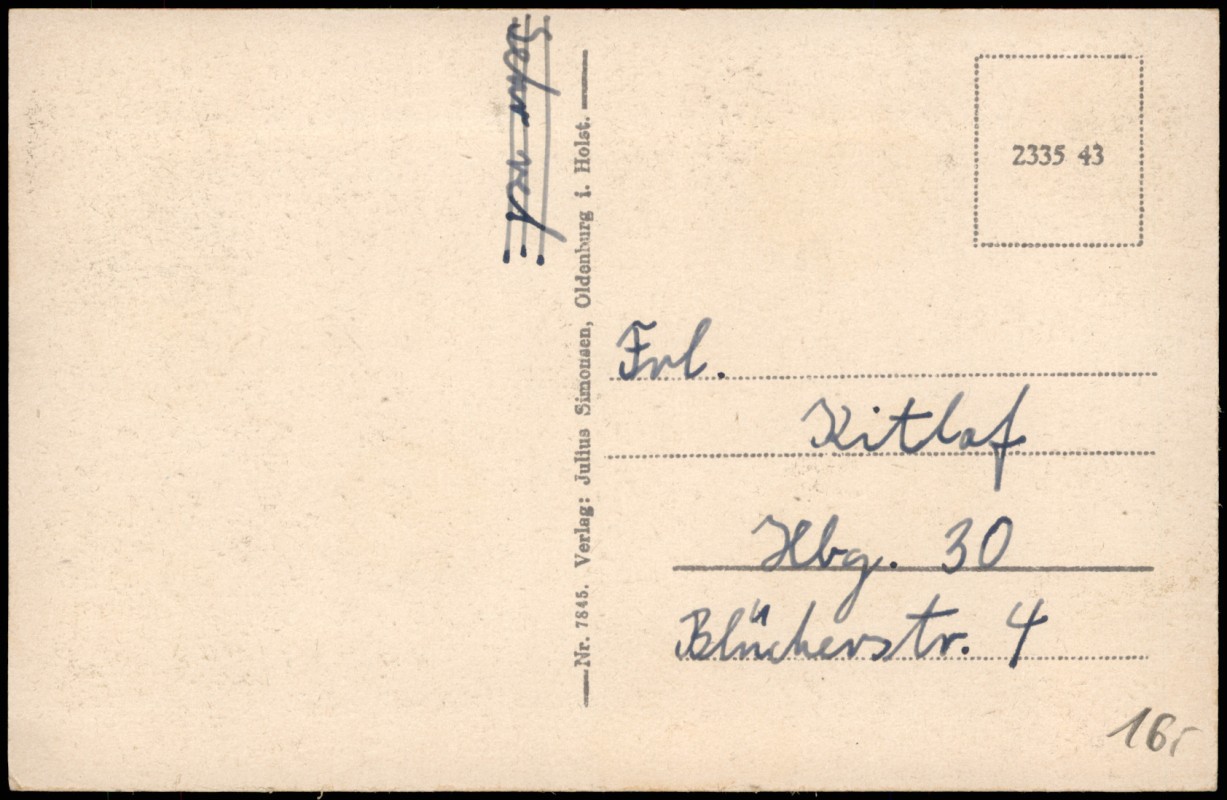 Sehr
Nr. 7845. Verlag: Julius Simonsen, Oldenburg i. Holst.
2335 43
Frl.
Kitlaf
Hbg. 30
Blücherstr. 4
16,-